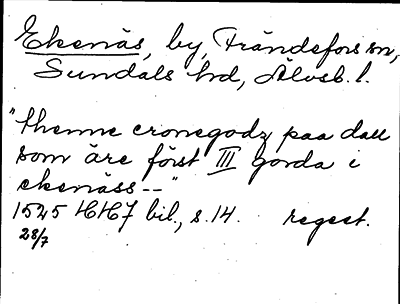 Ekenäs, by, Frändefors sn,
Sundals hd, Älvsb. l.
"thenne cronegodz paa dall
som äre först III gorda i
ekenäss --"
1525 HH7 bil., s. 14. regest.
28/7